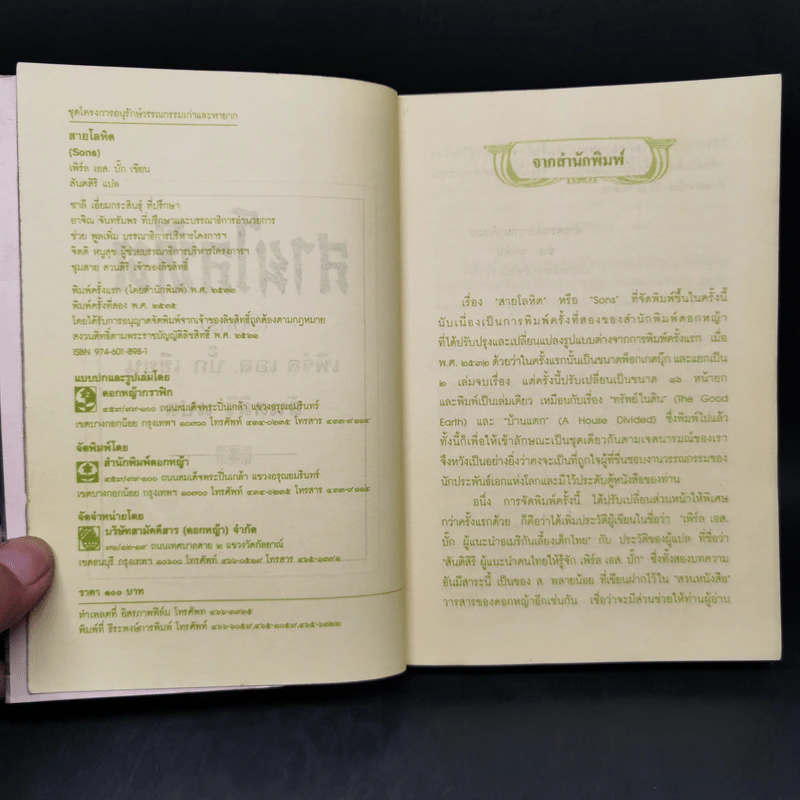 ชุดโครงการอนุรักษ์วรรณกรรมเก่าและหายาก
สายโลหิต
(Sons)
เพิร์ล เอส. บั๊ก เขียน
สันตสิริ แปล
ชาลี เอี่ยมกระสินธุ์ ที่ปรึกษา
อาจิณ จันทรัมพร ที่ปรึกษาและบรรณาธิการอำนวยการ
ช่วย พูลเพิ่ม บรรณาธิการบริหารโครงการฯ
จิตติ หนูสุข ผู้ช่วยบรรณาธิการบริหารโครงการฯ
ชุมสาย สวนสิริ เจ้าของลิขสิทธิ์
พิมพ์ครั้งแรก (โดยสำนักพิมพ์) พ.ศ. ๒๕๓๒
พิมพ์ครั้งที่สอง พ.ศ. ๒๕๓๕
โดยได้รับการอนุญาตจัดพิมพ์จากเจ้าของลิขสิทธิ์ถูกต้องตามกฎหมาย
สงวนสิทธิ์ตามพระราชบัญญัติลิขสิทธิ์ พ.ศ. ๒๕๒๑
ISBN 974-601-898-1
แบบปกและรูปเล่มโดย
ดอกหญ้ากราฟิก
๔๕๗/๙๙-๑๐๐ ถนนสมเด็จพระปิ่นเกล้า แขวงอรุณอมรินทร์
เขตบางกอกน้อย กรุงเทพฯ ๑๐๗๐๐ โทรศัพท์ ๔๓๔-๐๒๓๕ โทรสาร ๔๓๓-๙๑๑๔
จัดพิมพ์โดย
สำนักพิมพ์ดอกหญ้า
๔๕๗/๙๙-๑๐๐ ถนนสมเด็จพระปิ่นเกล้า แขวงอรุณอมรินทร์
เขตบางกอกน้อย กรุงเทพฯ ๑๐๗๐๐ โทรศัพท์ ๔๓๔-๐๒๓๕ โทรสาร ๔๓๓-๙๑๑๔
จัดจำหน่ายโดย
บริษัทสามัคคีสาร (ดอกหญ้า) จำกัด
๗๒/๑๒-๑๙ ถนนเทศบาลสาย ๒ แขวงวัดกัลยาณ์
เขตธนบุรี กรุงเทพฯ ๑๐๖๐๐ โทรศัพท์ ๔๖๖-๐๕๑๙ โทรสาร ๔๖๕-๑๓๙๑
ราคา ๑๐๐ บาท
ทำเพลตที่ อิสรภาพฟิล์ม โทรศัพท์ ๔๖๖-๓๓๒๕
พิมพ์ที่ ธีระพงษ์การพิมพ์ โทรศัพท์ ๔๖๖-๖๐๕๙,๔๖๕-๑๐๕๙,๔๖๕-๖๓๒๒
จากสำนักพิมพ์
เรื่อง "สายโลหิต" หรือ "Sons" ที่จัดพิมพ์ขึ้นในครั้งนี้
นับเนื่องเป็นการพิมพ์ครั้งที่สองของสำนักพิมพ์ดอกหญ้า
ที่ได้ปรับปรุงและเปลี่ยนแปลงรูปแบบต่างจากการพิมพ์ครั้งแรก เมื่อ
พ.ศ. ๒๕๓๒ ด้วยว่าในครั้งแรกนั้นเป็นขนาดพ็อกเกตบุ๊ก และแยกเป็น
๒ เล่มจบเรื่อง แต่ครั้งนี้ปรับเปลี่ยนเป็นขนาด ๑๖ หน้ายก
และพิมพ์เป็นเล่มเดียว เหมือนกับเรื่อง "ทรัพย์ในดิน" (The Good
Earth) และ "บ้านแตก" (A House Divided) ซึ่งพิมพ์ไปแล้ว
ทั้งนี้ก็เพื่อให้เข้าลักษณะเป็นชุดเดียวกันตามเจตนารมณ์ของเรา
จึงหวังเป็นอย่างยิ่งว่าคงจะเป็นที่ถูกใจผู้ที่ชื่นชอบงานวรรณกรรมของ
นักประพันธ์เอกแห่งโลกและมีไว้ประดับตู้หนังสือของท่าน
อนึ่ง การจัดพิมพ์ครั้งนี้ ได้ปรับเปลี่ยนส่วนหน้าให้พิเศษ
กว่าครั้งแรกด้วย ก็คือว่าได้เพิ่มประวัติผู้เขียนในชื่อว่า "เพิร์ล เอส.
บั๊ก ผู้แนะนำอเมริกันเลี้ยงเด็กไทย" กับ ประวัติของผู้แปล ที่ชื่อว่า
"สันติสิริ ผู้แนะนำคนไทยให้รู้จัก เพิร์ล เอส. บั๊ก" ซึ่งทั้งสองบทความ
อันมีสาระนี้ เป็นของ ส. พลายน้อย ที่เขียนฝากไว้ใน "สวนหนังสือ"
วารสารของดอกหญ้าอีกเช่นกัน เชื่อว่าจะมีส่วนช่วยให้ท่านผู้อ่าน